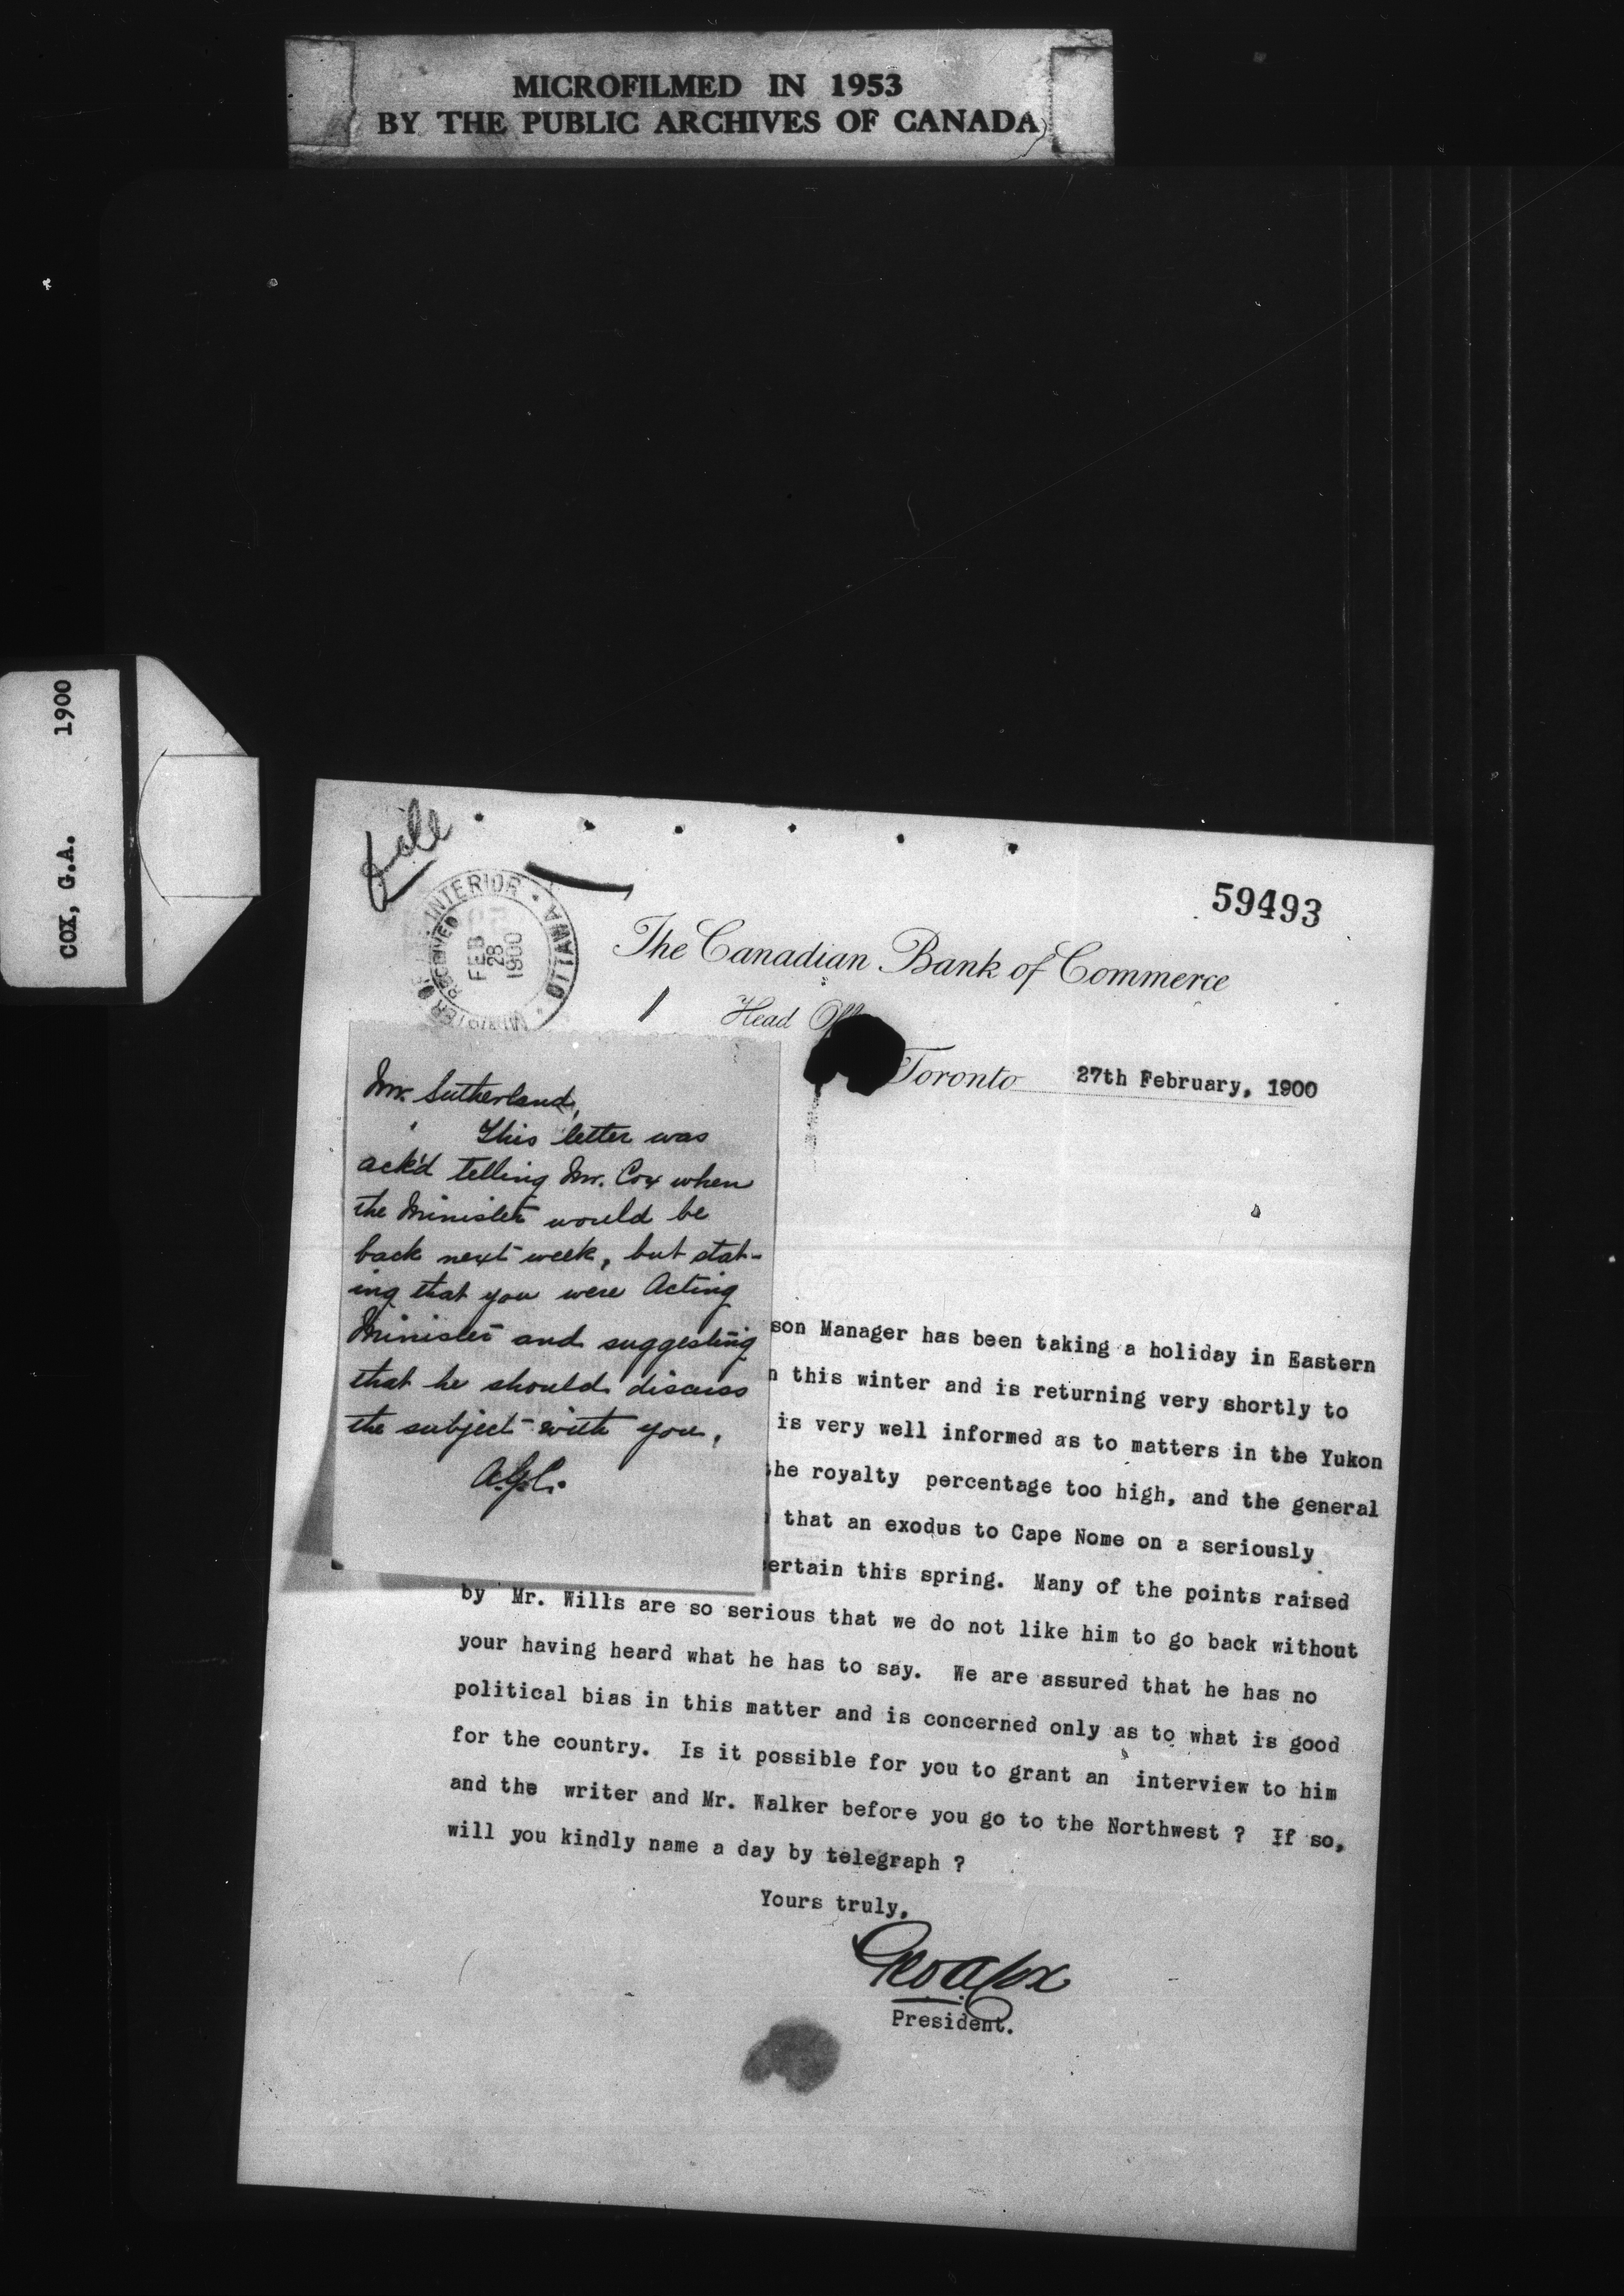 MICROFILMED IN 1953
BY THE PUBLIC ARCHIVES OF CANADA
COX, G.A. 1900
file
59493
MINISTER OF INTERIOR · OTTAWA ·
RECEIVED
FEB
28
1900
The Canadian Bank of Commerce
Head
Toronto 27th February, 1900
Mr. Sutherland,
This letter was
ack'd telling Mr. Cox when
the Minister would be
back next week, but stat-
ing that you were Acting
Minister and suggesting
that he should discuss
the subject with you.
son Manager has been taking a holiday in Eastern
n this winter and is returning very shortly to
is very well informed as to matters in the Yukon
he royalty percentage too high, and the general
that an exodus to Cape Nome on a seriously
ertain this spring. Many of the points raised
by Mr. Wills are so serious that we do not like him to go back without
your having heard what he has to say. We are assured that he has no
political bias in this matter and is concerned only as to what is good
for the country. Is it possible for you to grant an interview to him
and the writer and Mr. Walker before you go to the Northwest ? If so,
will you kindly name a day by telegraph ?
Yours truly,
Geo A Cox
President.